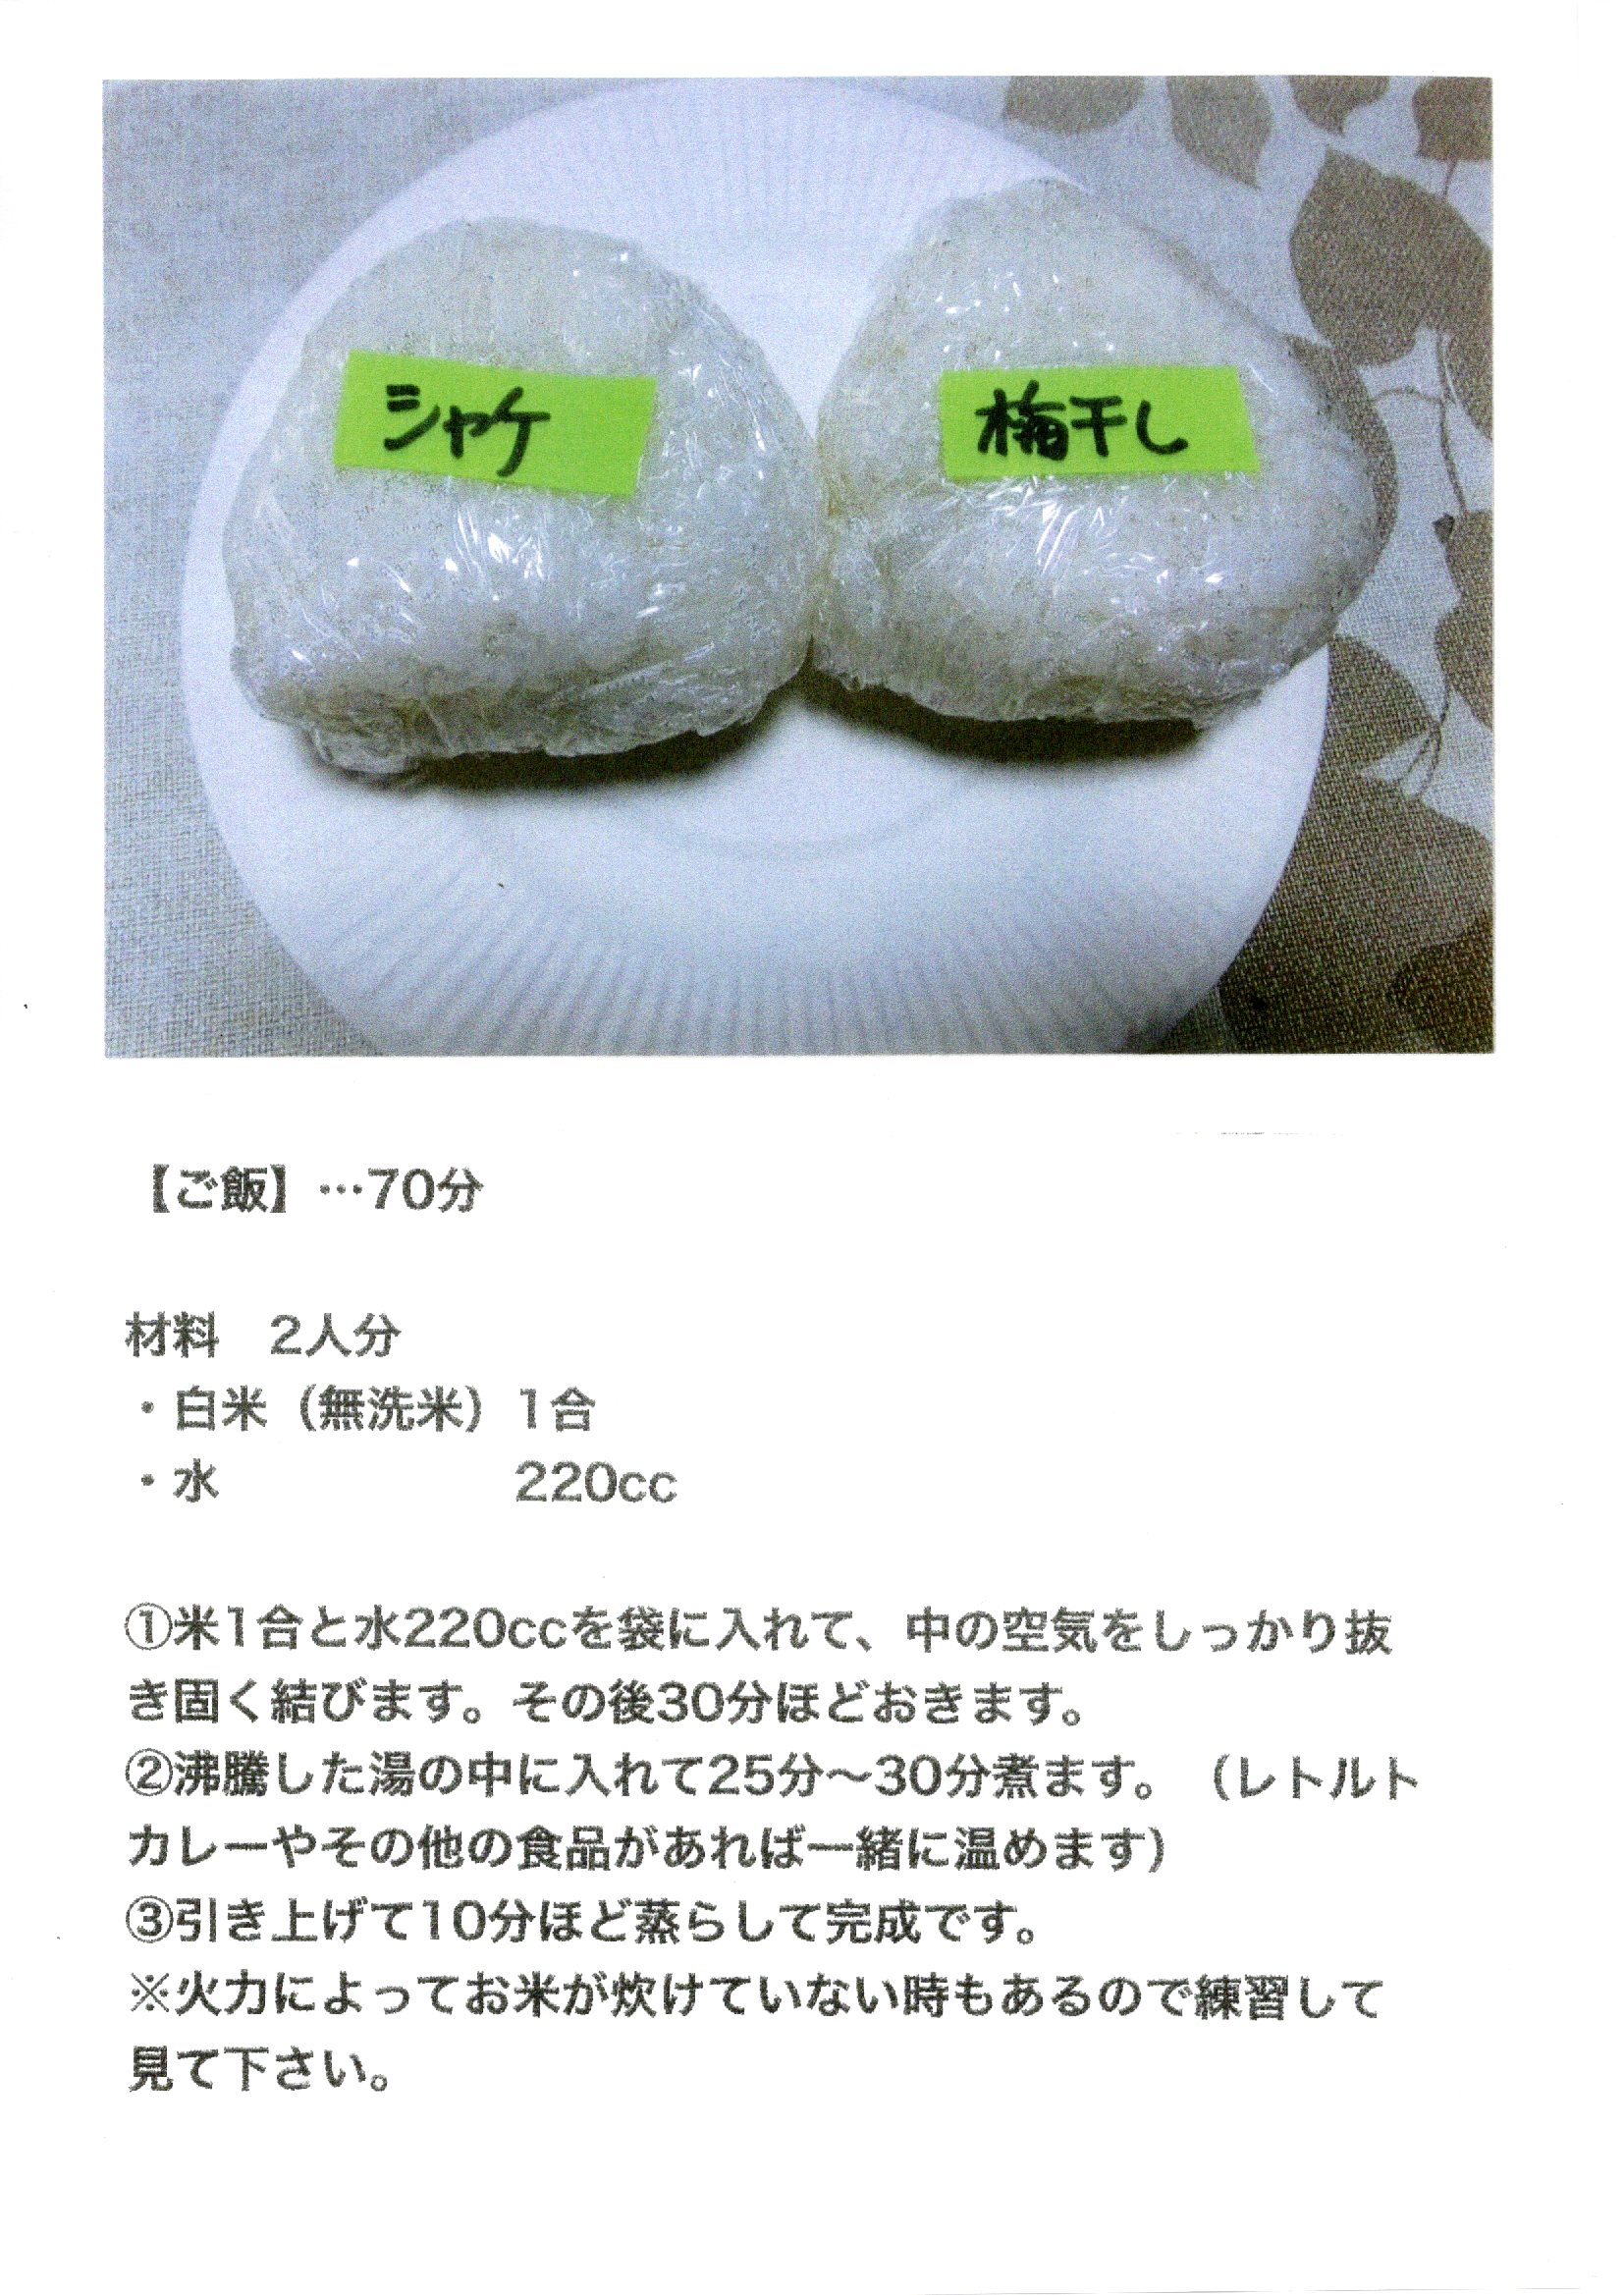 シャケ
梅干し
【ご飯】…70分
材料　2人分
・白米（無洗米）1合
・水　　　　　　220cc
①米1合と水220ccを袋に入れて、中の空気をしっかり抜
き固く結びます。その後30分ほどおきます。
②沸騰した湯の中に入れて25分〜30分煮ます。（レトルト
カレーやその他の食品があれば一緒に温めます）
③引き上げて10分ほど蒸らして完成です。
※火力によってお米が炊けていない時もあるので練習して
見て下さい。